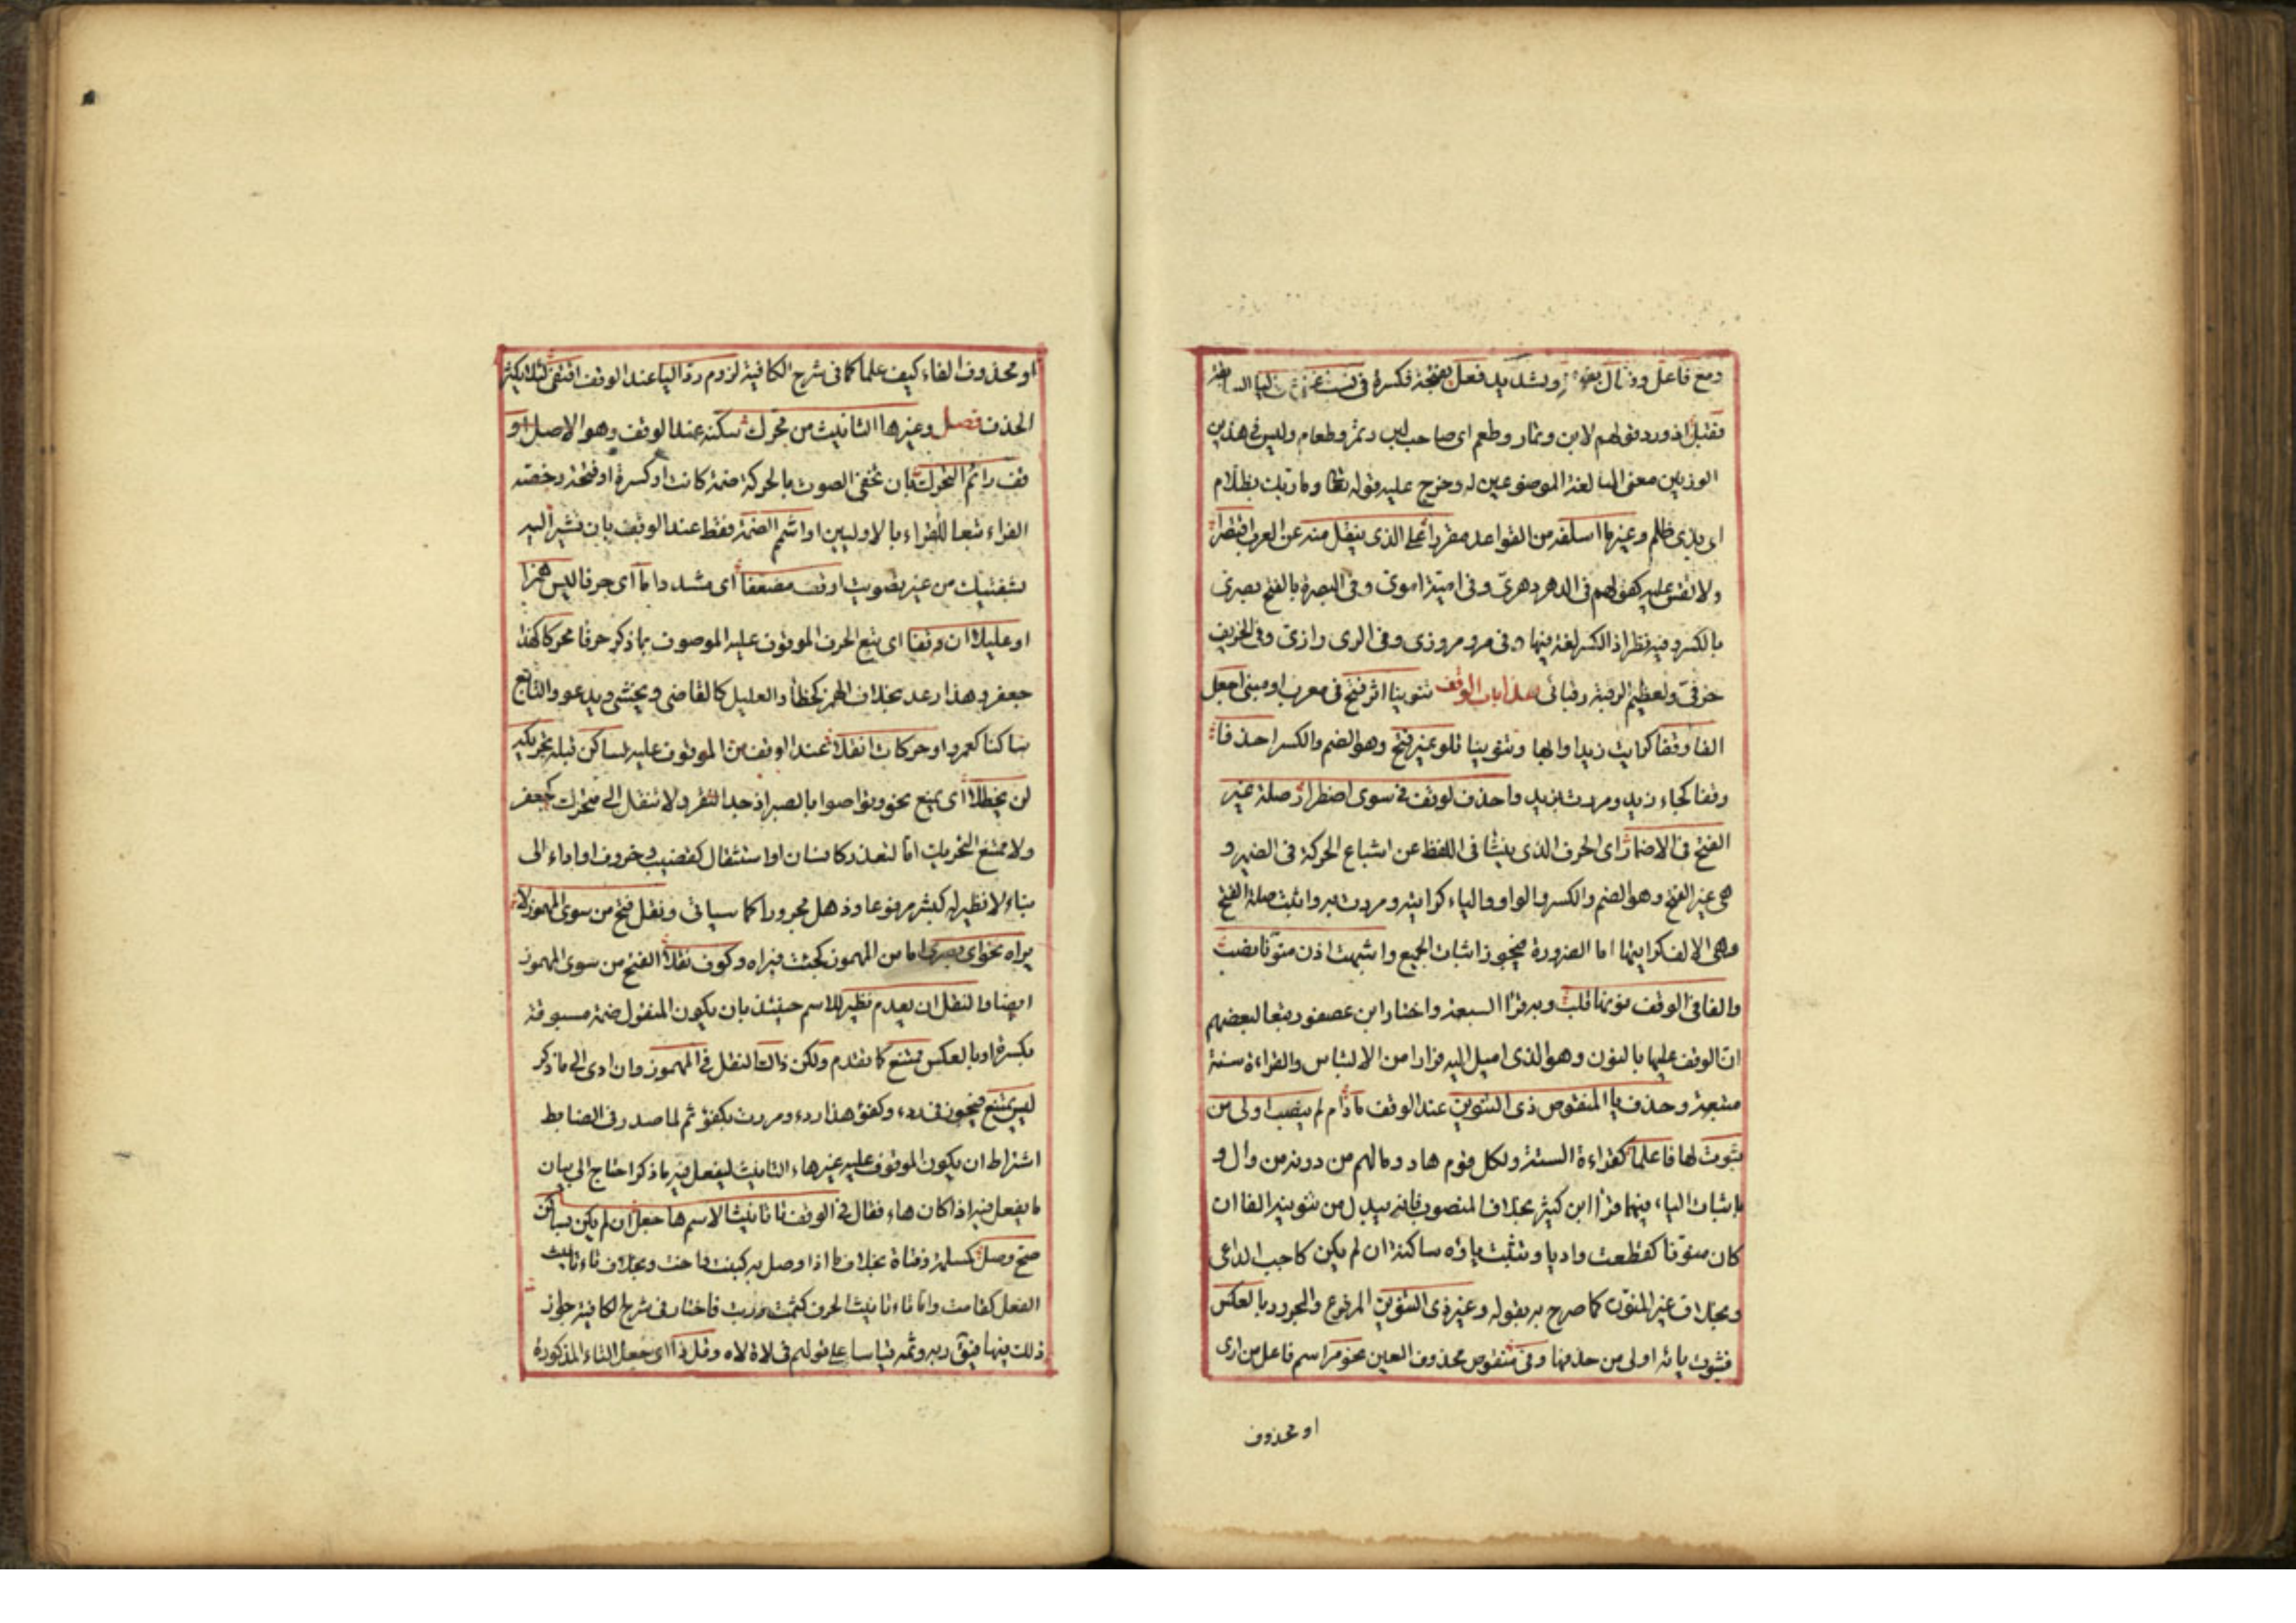 ومع فاعل وفعال بفتحة وتشديد فعل بفتحة فكسرة في نسب اغنى عن اليا السابقة
فقبل اذ ورد قولهم لابن وتمار وطعم اى صاحب لبن وتمر وطعام وليس فى هذين
الوزنين معنى المبالغة الموضوعين له وخرج عليه قوله تعالى وما ربك بظلام
اى بذى ظلم وغير ما اسلفته من القواعد مقررا على الذى ينقل منه عن العرب اقتصرا
ولا تقس عليه كقولهم فى الدهر دهرىّ وفى امية اموىّ وفى البصرة بالفتح بصرى
بالكسر وفيه نظر اذ الكسر لغة فيها وفى مرو مروزى وفى الرى رازىّ وفى الخريف
خرفىّ ولعظيم الرقبة رقبانى هذا باب الوقف تنوينا اثر فتح فى معرب او مبنى اجعل
الفا وقفا كرايت زيدا وايها وتنوينا تلو غير فتح وهو الضم والكسر احذفا
وقفا كجاء زيد ومررت بزيد واحذف لوقف فى سوى اضطرار صلة غير
الفتح فى الاضمار اى الحرف الذى ينشا فى اللفظ عن اشباع الحركة فى الضمير و
هى غير الفتح وهو الضم والكسر والواو والياء كرايته ومررت به واثبت صلة الفتح
وهى الالف كرايتها اما الضرورة فيجوز اثبات الجميع واشبهت اذن منونا نصب
والفا فى الوقف نونها قلب وبه قرأ السبعة واختار ابن عصفور تبعا لبعضهم
ان الوقف عليها بالنون وهو الذى اميل اليه فرارا من الالتباس والقراءة سنة
متبعة وحذف يا المنقوص ذى التنوين عند الوقف ما دام لم ينصب اولى من
ثبوت لها فاعلما كقراءة الستة ولكل قوم هاد وما لهم من دونه من وال و
باثبات الياء فيهما قرأ ابن كثير بخلاف المنصوب فانه يبدل من تنوينه الفا ان
كان منونا كقطعت واديا وتثبت ياؤه ساكنة ان لم يكن كاجب الداعى
وبخلاف غير المنون كما صرح به بقوله وغير ذى التنوين المرفوع والمجرور بالعكس
فثبوت يائه اولى من حذفها وفى منقوص محذوف العين نحو مر اسم فاعل من ارى
او محذوف
او محذوف الفاء كيف علما كما فى شرح الكافية لزوم رد اليا عند الوقف اقتفى لئلا يكثر
الحذف فصل وغير ها التانيث من محرك سكنه عند الوقف وهو الاصل او
قف رائم التحرك بان تخفى الصوت بالحركة ضمة كانت او كسرة او فتحة وخصه
الفراء تبعا للقراء بالاوليين او اشمم الضمة فقط عند الوقف بان تشير اليه
بشفتيك من غير تصويت او قف مضعفا اى مشددا ما اى حرفا ليس همزا
او عليلا ان وقفا اى يتبع الحرف الموقوف عليه الموصوف بما ذكر حرفا محركا كهذا
جعفر وهذا رعد بخلاف الهمز كخطأ والعليل كالقاضى ويخشى ويدعو والتابع
ساكنا كعمرو او حركات انقلا عند الوقف من الموقوف عليه لساكن قبله تحريكه
لن يحظلا اى يمنع نحو وتواصوا بالصبر اذ جد النقر ولا تنقل الى متحرك كجعفر
ولا ممتنع التحريك اما لتعذر كانسان او استثقال كقضيب وخروف او اداء الى
بناء لا نظير له كبشر مرفوعا وذهل مجرورا كما سياتى ونقل فتح من سوى المهموز لا
يراه نحوى بصرى اما من المهموز كجئت فيراه وكوف نقلا الفتح من سوى المهموز
ايضا والنقل ان يعدم نظير للاسم حينئذ بان يكون المنقول ضمة مسبوقة
بكسرة او بالعكس ممتنع كما تقدم ولكن ذاك النقل فى المهموز وان ادى الى ما ذكر
ليس يمتنع فيجوز فى ردء وكفؤ هذا ردء ومررت بكفؤ ثم لما صدر فى الضابط
اشتراط ان يكون الموقوف عليه غير هاء التانيث ليفعل فيه ما ذكر احتاج الى بيان
ما يفعل فيه اذا كان هاء فقال فى الوقف تا تانيث الاسم ها جعل ان لم يكن بساكن
صح وصل كمسلمة وفتاة بخلاف ما اذا وصل به كبنت واخت وبخلاف تاء تانيث
الفعل كقامت واما تاء تانيث الحرف كثمت وربت فاختار فى شرح الكافية جواز
ذلك فيها فيقال ربه وثمه قياسا على قولهم فى لاة لاه وقل ذا اى جعل التاء المذكورة